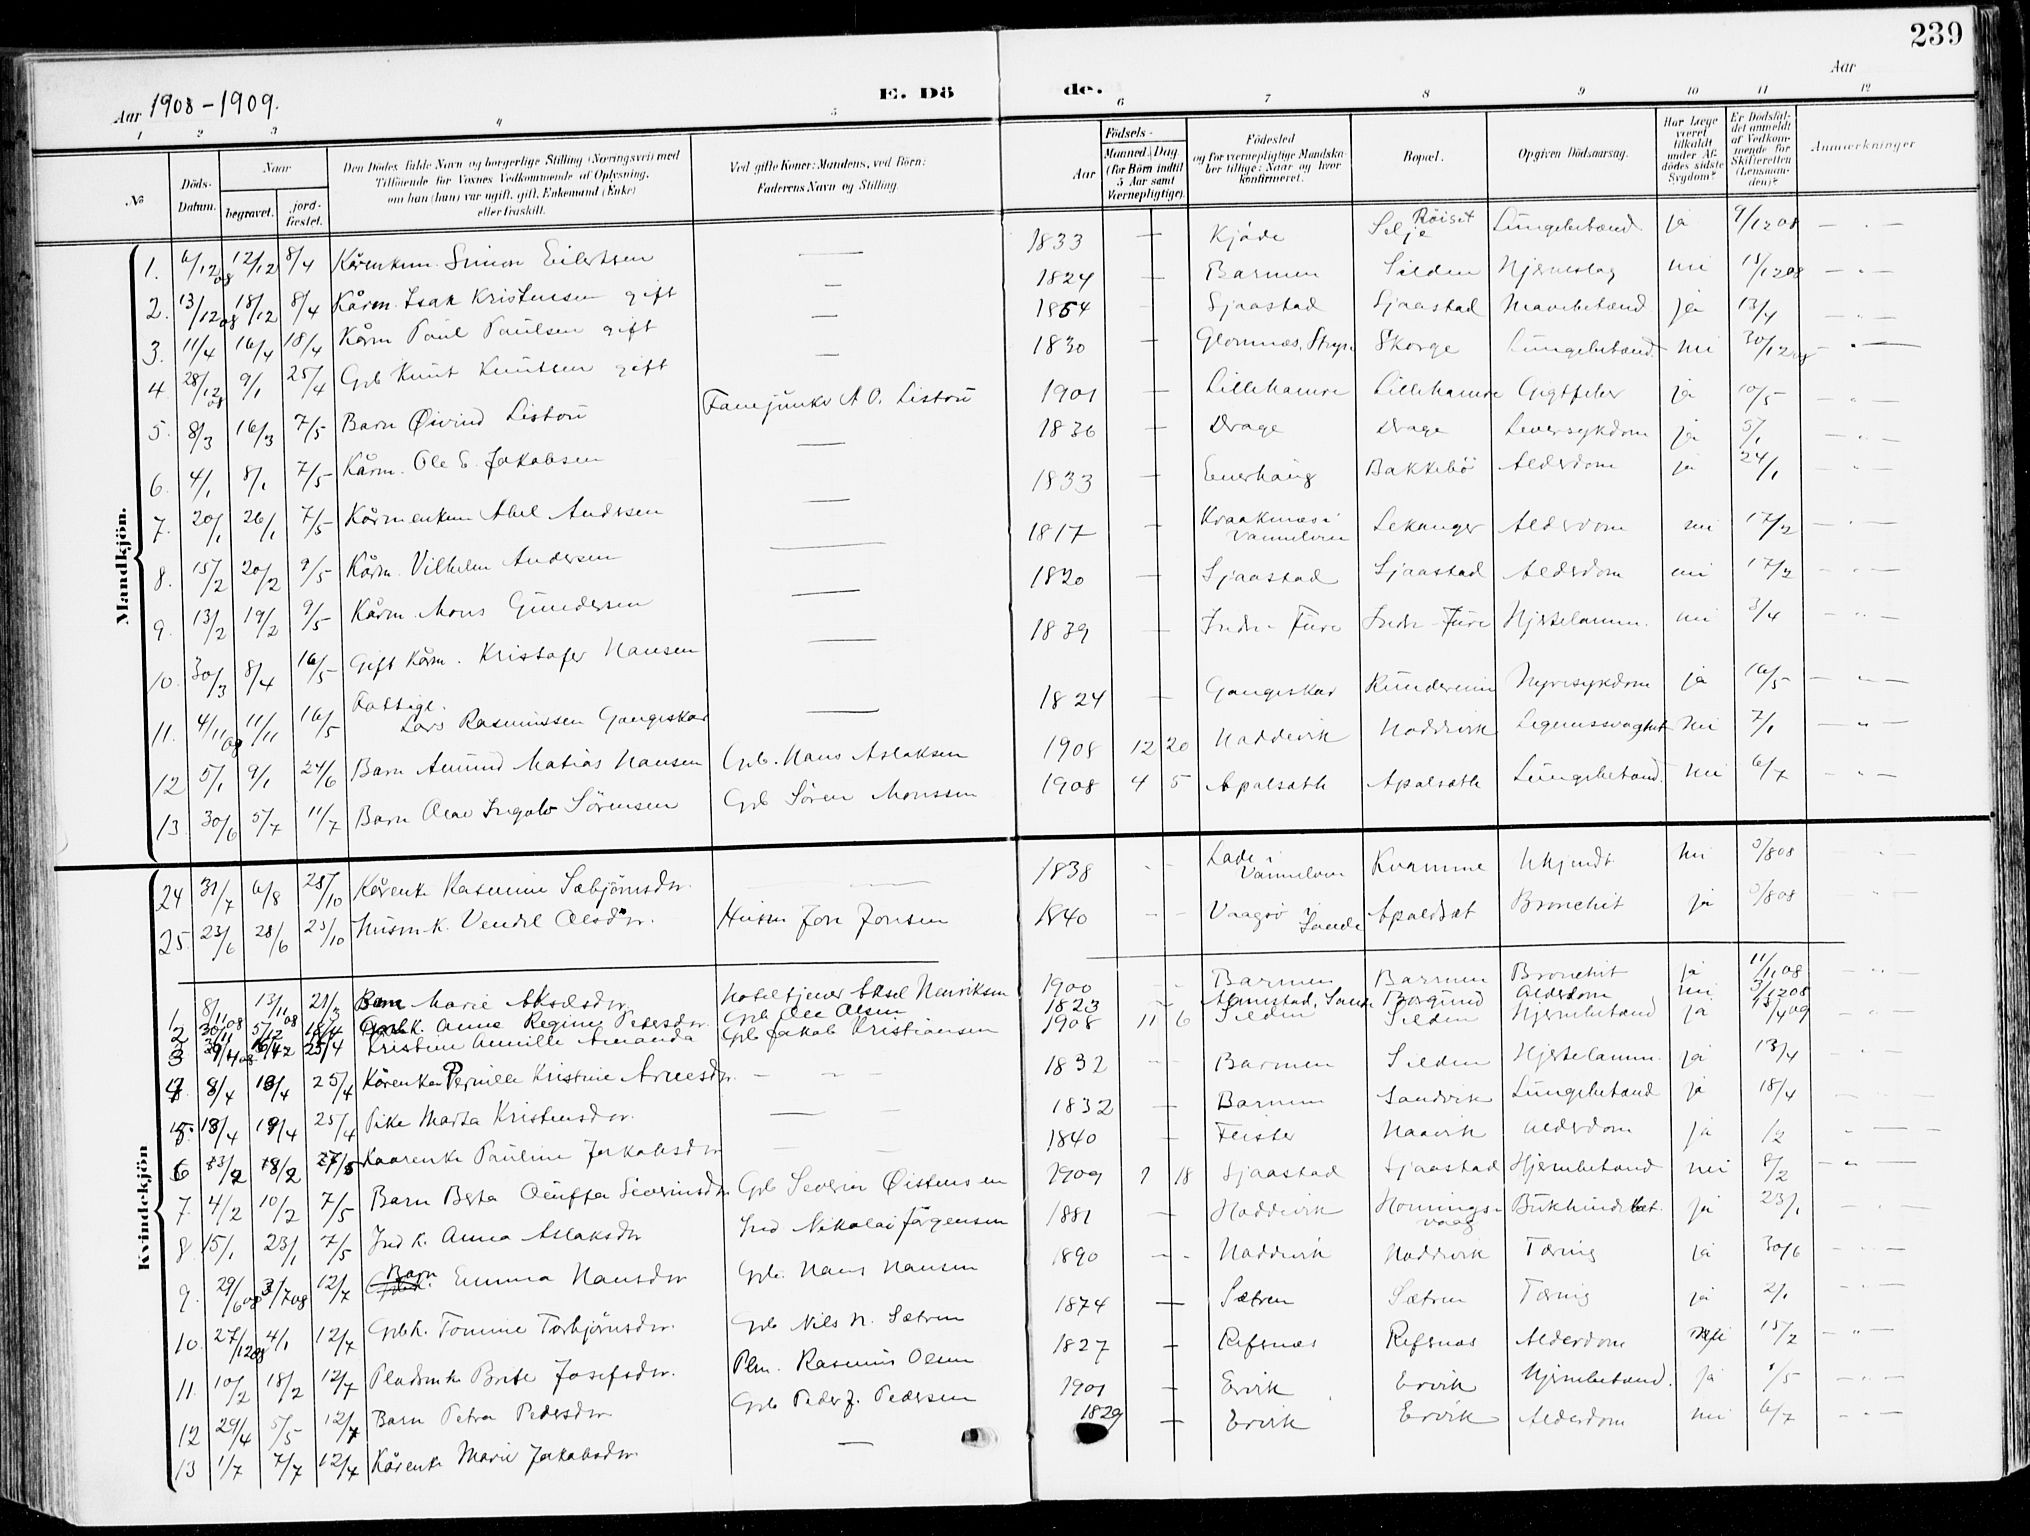 239
Aar 1908-1909.
E. Dö de.
Aar
1 2 3 4 5 6 7 8 9 10 11 12
№
Döds-Datum.
Naar
begravet.
jordfæstet.
Den Dödes fulde Navn og borgerlige Stilling (Næringsvei) med
Tilföiende for Voxnes Vedkommende af Oplysning,
om han (hun) var ugift, gift, Enkemand (Enke)
eller fraskilt.
Ved gifte Koner: Mandens, ved Börn:
Faderens Navn og Stilling.
Födsels-
Aar
Maaned. Dag
(for Börn indtil
5 Aar samt
Værnepligtige).
Födested
og for værnepligtige Mandskaber tillige: Naar og hvor konfirmeret.
Bopæl.
Opgiven Dödsaarsag.
Har Læge været tilkaldt under Afdödes sidste Sygdom?
Er Dödsfaldet anmeldt af Vedkommende for Skifteretten (Lensmanden)?
Anmærkninger
Mandkjön.
1. 6/12 08 12/12 8/4 Kårenkem. Simon Eilertsen — 1833 — Kjøde Röiset Selje Lungebetænd ja 9/12 08
2. 13/12 08 18/12 8/4 Kårm. Isak Kristensen gift — 1824 — Barmen Silden Hjerneslag nei 15/12 08
3. 11/4 16/4 18/4 Kårm Paul Paulsen gift — 1854 — Sjaastad Sjaastad Mavebetænd ja 13/4
4 28/12 08 9/1 25/4 Grb Knut Knutsen gift — 1830 — Glomnæs, Stryn Skorge Lungebetænd nei 30/12 08
5. 8/3 16/3 7/5 Barn Øivind Listou Fanejunker A O. Listou 1901 — Lillehamre Lillehamre Gigtfeber ja 10/5
6. 4/1 8/1 7/5 Kårm. Ole E. Jakobsen — 1836 — Drage Drage Leversykdom ja 5/1
7. 20/1 26/1 7/5 Kårmenkem Abel Andersen — 1833 — Enerhaug Bakkebö Alderdom ja 24/1
8. 15/2 20/2 9/5 Kårm. Vilhelm Andersen — 1817 — Kraakenæs i Vannelven Lekanger Alderdom nei 17/2
9. 13/2 19/2 9/5 Kårm. Mons Gundersen — 1820 — Sjaastad Sjaastad Alderdom nei 17/2
10. 30/3 8/4 16/5 Gift Kårm. Kristofer Hansen — 1839 — Indre-Fure Indre-Fure Hjertelamm. nei 3/4
11. 4/11 08 11/11 16/5 Fattigl. Lars Rasmussen Gangeskar — 1824 — Gangeskar Rundereim Nyresykdom ja 16/5
12 5/1 9/1 24/6 Barn Amund Matias Hansen Grb. Hans Aslaksen 1908 12 20 Hoddevik Hoddevik Legemssvaghet nei 7/1
13. 30/6 5/7 11/7 Barn Olav Ingolv Sörensen Grb Sören Monssen 1908 4 5 Apalsæth Apalsæth Lungebetænd. nei 6/7
Kvindekjön
24 31/7 6/8 25/10 Kårenke Rasmine Sæbjörnsdtr. 1838 Lade i Vannelven Kvamme Ukjendt nei 5/8 08
25 23/6 28/6 25/10 Husm.k. Vendel Olsdtr. Husm Jon Jonsen 1840 Vaagsö Sande Apaldsæt Bronchit ja 5/8 08
1. 8/11 08 13/11 08 21/3 Barn Marie Akselsdtr. Hoteltjener Aksel Henriksen 1900 Barmen Barmen Bronchit ja 11/11 08
2 30/11 5/12 18/4 Grbk. Anne Regine Petersdtr. Grb Ole Olsen 1823 Almestad, Sande Borgund Alderdom nei 3/12 08
3 25/4 Kristine Annille Amanda Grb Jakob Kristiansen 1908 11 6 Silden Silden Hjernebetænd ja 15/4 09
4 8/4 13/4 25/4 Kårenke Pernille Kristine Arnesdtr. 1832 Barmen Silden Hjertelamm. ja 13/4
5 13/4 19/4 25/4 Pike Marta Kristensdtr. 1832 — Barmen Sandvik Lungebetænd ja 18/4
6 13/2 18/2 Kaarenke Pauline Jakobsdtr 1840 — Feister Haavik Alderdom ja 1/2
7. 4/2 10/2 7/5 Barn Berta Severinsdtr Grb Severin Øistensen 1909 1 18 Sjaastad Sjaastad Hjernbetænd nei 8/2
8 15/1 23/1 7/5 Ind k. Anna Aslaksdtr Ind Nikolai Jörgensen 1881 — Hoddevik Honningsvaag Bukhindebet. ja 23/1
9. 29/6 08 3/7 08 12/7 Barn Emma Hansdtr Grb. Hans Hansen 1890 — Hoddevik Hoddevik Tæring ja 30/6
10. 27/12 08 4/1 12/7 Grbk. Tomine Torbjörnsdtr. Grb Nils N. Sætren 1874 — Sætren Sætren Tæring ja 2/1
11. 10/2 18/2 12/7 Pladsmk Brite Josefsdtr. Plm. Rasmus Olsen 1827 — Refsnæs Refsnæs Alderdom nei 15/2
12 29/4 5/5 12/7 Barn Petra Pedersdtr Grb Peder J. Pedersen 1901 — Ervik Ervik Hjernebetænd. ja 1/5
13 1/7 7/7 12/7 Kårenke Marie Jakobsdtr. — 1829 — Ervik Ervik Alderdom nei 6/7